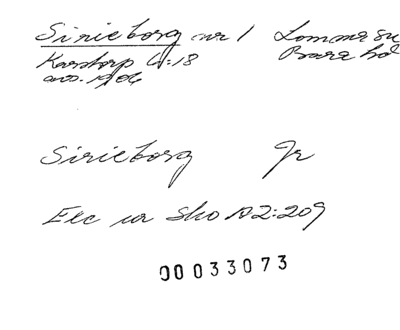 Sirieborg nr 1 Lomma sn
Karstorp 4:18 Bara hd
avs. 1906
Sirieborg Gr
Elc ur Sko A2:209
00033073